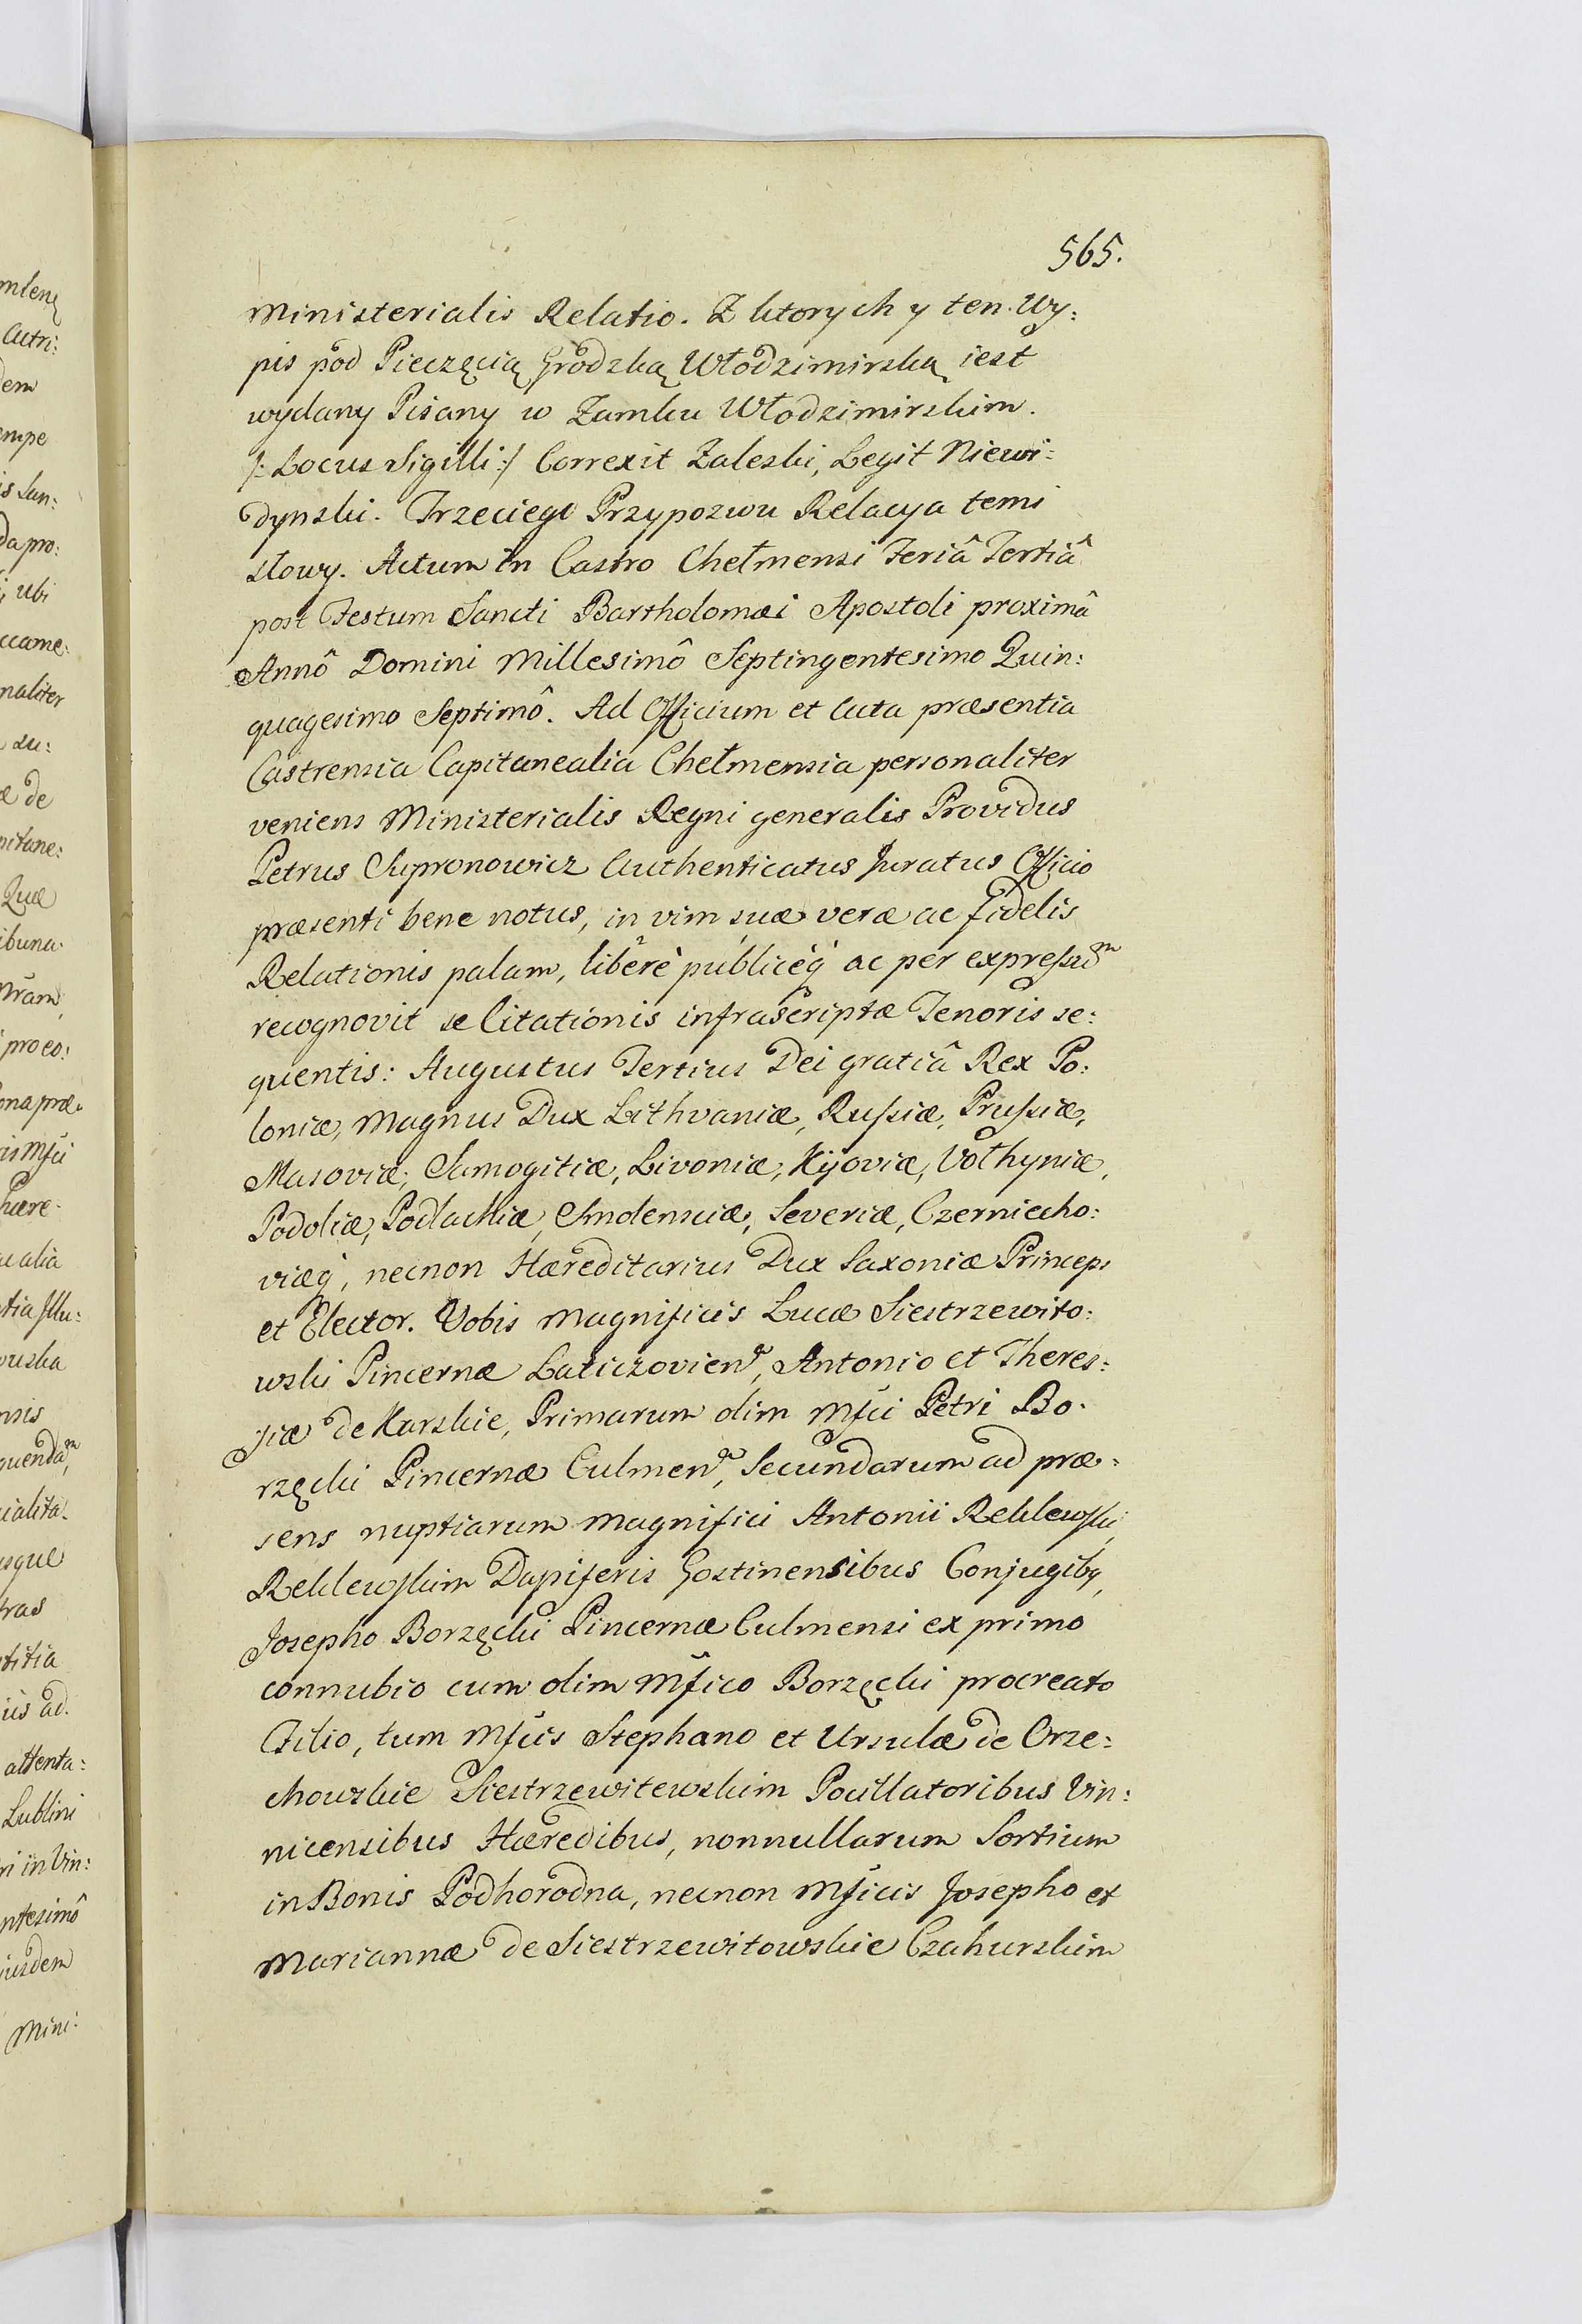 565.
Ministerialis Relatio. Z ktorych y ten Wy:
pis pod Pieczęcią Grodzką Włodzimirską iest
wydany Pisany w Zamku Włodzimirskim.
/: Locus Sigilli :/ Correxit Zaleski, Legit Niewi:
dynski. Trzeciego Przypozwu Relacya temi
słowy. Actum in Castro Chełmensi Feriâ Tertiâ
post Festum Sancti Bartholomæi Apostoli proximâ
Annô Domini Millesimô Septingentesimo Quin:
quagesimo Septimô. Ad Officium et Acta præsentia
Castrensia Capitanealia Chełmensia personaliter
veniens Ministerialis Regni generalis Providus
Petrus Supronowicz Authenticatus Juratus Officio
præsenti bene notus, in vim suæ veræ ac fidelis
Relationis palam, liberè publicèq́ ac per expressum
recognovit se Citationis infrascriptæ Tenoris se:
quentis: Augustus Tertius Dei gratiâ Rex Po:
loniæ, Magnus Dux Lithvaniæ, Russiæ, Prussiæ,
Masoviæ, Samogitiæ, Livoniæ, Kijoviæ, Vołhyniæ,
Podoliæ, Podlachiæ, Smolensciæ, Severiæ, Czerniecho:
viæq́, necnon Hæreditarius Dux Saxoniæ Princeps
et Elector. Vobis Magnificis Lucæ Siestrzewito:
wski Pincernæ Laticzovien, Antonio et Theres:
siæ de Karskie, Primarum olim Mfci Petri Bo:
rzęcki Pincernæ Culmen, Secundarum ad præ:
sens nuptiarum Magnifici Antonii Reklewski,
Reklewskim Dapiferis Gostinensibus Conjugibq,
Josepho Borzęcki Pincernæ Culmensi ex primo
connubio cum olim Mfico Borzęcki procreato
Filio, tum Mfcis Stephano et Ursulæ de Orze:
chowskie Siestrzewitewskim Pocillatoribus Vin:
nicensibus Hæredibus, nonnullarum Sortium
in Bonis Podhorodna, necnon Mficis Josepho et
Mariannæ de Siestrzewitowskie Czahurskim